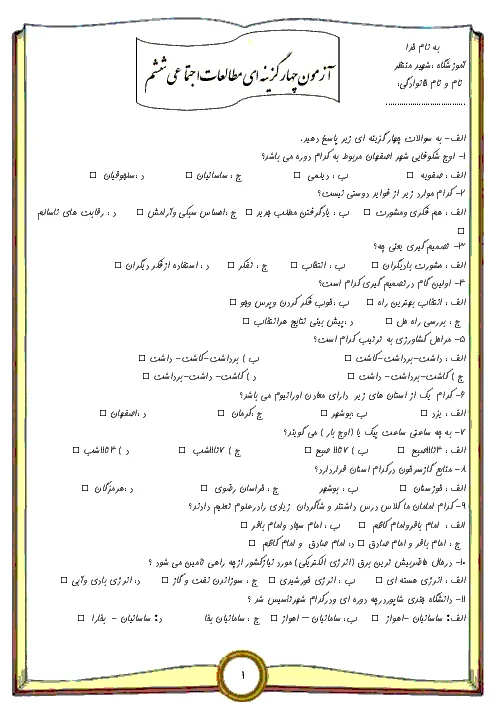 به نام خدا
آموزشگاه : شهید منتظر
نام و نام خانوادگی:
................................
آزمون چهارگزینه ای مطالعات اجتماعی ششم
الف- به سوالات چهارگزینه ای زیر پاسخ دهید.
۱- اوج شکوفایی شهر اصفهان مربوط به کدام دوره می باشد؟
الف : صفویه □ ب : دیلمی □ ج : ساسانیان □ د : سلجوقیان □
۲- کدام موارد زیر از فواید دوستی نیست؟
الف : هم فکری ومشورت □ ب : یادگرفتن مطلب جدید □ ج :احساس سبکی وآرامش □ د : رقابت های ناسالم
□
۳- تصمیم گیری یعنی چه؟
الف : مشورت بادیگران □ ب : انتخاب □ ج : تفکر □ د : استفاده ازفکر دیگران □
۴- اولین گام درتصمیم گیری کدام است؟
الف : انتخاب بهترین راه □ ب :خوب فکر کردن وپرس وجو □
ج : بررسی راه حل □ د :پیش بینی نتایج هرانتخاب □
۵- مراحل کشاورزی به ترتیب کدام است؟
الف : داشت-برداشت-کاشت □ ب ) برداشت-کاشت- داشت □
ج ) کاشت-برداشت- داشت □ د ) کاشت- داشت-برداشت □
۶- کدام یک از استان های زیر دارای معادن اورانیوم می باشد؟
الف : یزد □ ب :بوشهر □ ج :کرمان □ د :اصفهان □
۷- به چه ساعتی ساعت پیک یا (اوج بار ) می گویند؟
الف : ۴تا۱۱صبح □ ب ) ۷تا۱۱ صبح □ ج ) ۷تا۱۱شب □ د ) ۴تا۱۱شب □
۸- منابع گازسرخون درکدام استان قراردارد؟
الف : خوزستان □ ب : بوشهر □ ج : خراسان رضوی □ د :هرمزگان □
۹- کدام امامان ما کلاس درس داشتند و شاگردان زیادی رادرعلوم تعلیم دادند؟
الف : امام باقروامام کاظم □ ب : امام سجاد وامام باقر □
ج : امام باقر و امام صادق □ د: امام صادق و امام کاظم □
۱۰- درحال حاضربیش ترین برق (انرژی الکتریکی) مورد نیازکشور ازچه راهی تامین می شود ؟
الف : انرژی هسته ای □ ب : انرژی خورشیدی □ ج : سوزاندن نفت و گاز □ د: انرژی بادی وآبی □
۱۱- دانشگاه جندی شاپوردرچه دوره ای ودرکدام شهرتاسیس شد ؟
الف: ساسانیان -اهواز □ ب: سامانیان – اهواز □ ج : سامانیان بخارا □ د: ساسانیان – بخارا □
۱